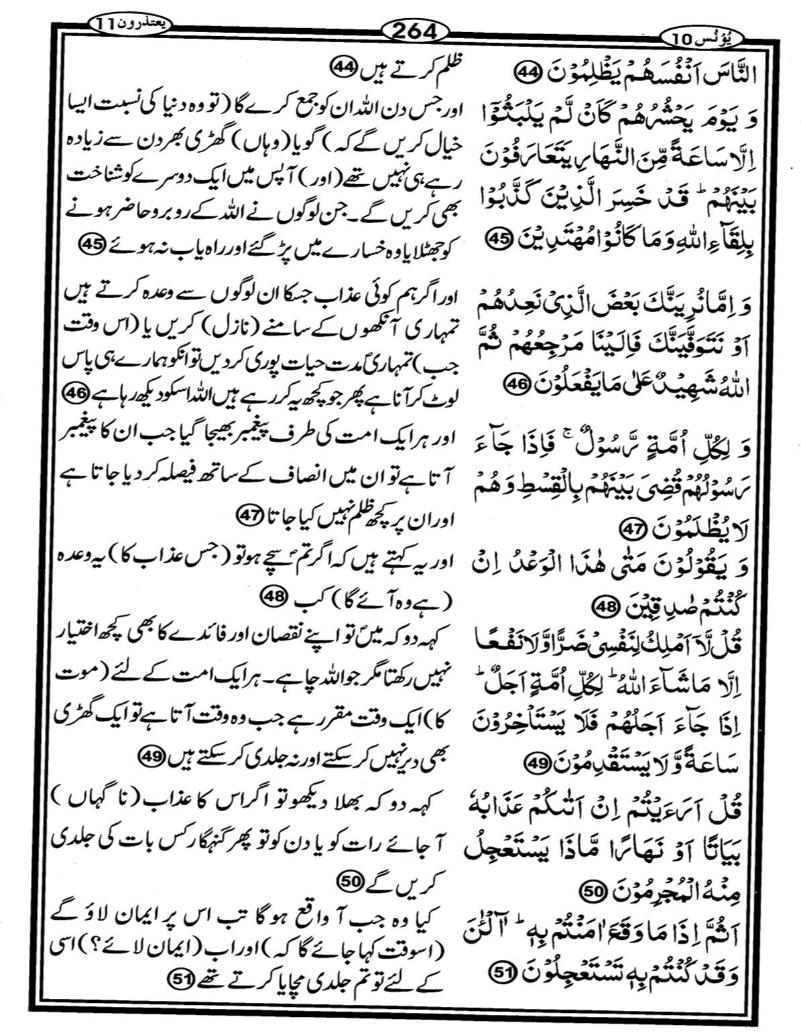 يُوْنُس 10
264
یعتذرون 11
النَّاسَ اَنْفُسَهُمْ يَظْلِمُوْنَ 44
وَ يَوْمَ يَحْشُرُهُمْ كَاَنْ لَّمْ يَلْبَثُوْۤا
اِلَّا سَاعَةً مِّنَ النَّهَارِ يَتَعَارَفُوْنَ
بَيْنَهُمْ ؕ قَدْ خَسِرَ الَّذِيْنَ كَذَّبُوْا
بِلِقَآءِ اللّٰهِ وَمَا كَانُوْا مُهْتَدِيْنَ 45
وَ اِمَّا نُرِيَنَّكَ بَعْضَ الَّذِيْ نَعِدُهُمْ
اَوْ نَتَوَفَّيَنَّكَ فَاِلَيْنَا مَرْجِعُهُمْ ثُمَّ
اللّٰهُ شَهِيْدٌ عَلٰى مَا يَفْعَلُوْنَ 46
وَ لِكُلِّ اُمَّةٍ رَّسُوْلٌ ۚ فَاِذَا جَآءَ
رَسُوْلُهُمْ قُضِيَ بَيْنَهُمْ بِالْقِسْطِ وَهُمْ
لَا يُظْلَمُوْنَ 47
وَ يَقُوْلُوْنَ مَتٰى هٰذَا الْوَعْدُ اِنْ
كُنْتُمْ صٰدِقِيْنَ 48
قُلْ لَّاۤ اَمْلِكُ لِنَفْسِيْ ضَرًّا وَّلَا نَفْعًا
اِلَّا مَا شَآءَ اللّٰهُ ؕ لِكُلِّ اُمَّةٍ اَجَلٌ ؕ
اِذَا جَآءَ اَجَلُهُمْ فَلَا يَسْتَاْخِرُوْنَ
سَاعَةً وَّلَا يَسْتَقْدِمُوْنَ 49
قُلْ اَرَءَيْتُمْ اِنْ اَتٰىكُمْ عَذَابُهٗ
بَيَاتًا اَوْ نَهَارًا مَّاذَا يَسْتَعْجِلُ
مِنْهُ الْمُجْرِمُوْنَ 50
اَثُمَّ اِذَا مَا وَقَعَ اٰمَنْتُمْ بِهٖ ؕ آٰلْـٰٔنَ
وَقَدْ كُنْتُمْ بِهٖ تَسْتَعْجِلُوْنَ 51
ظلم کرتے ہیں 44
اور جس دن اللہ ان کو جمع کرے گا (تو وہ دنیا کی نسبت ایسا
خیال کریں گے کہ) گویا (وہاں) گھڑی بھر دن سے زیادہ
رہے ہی نہیں تھے (اور) آپس میں ایک دوسرے کو شناخت
بھی کریں گے۔ جن لوگوں نے اللہ کے روبرو حاضر ہونے
کو جھٹلایا وہ خسارے میں پڑ گئے اور راہ یاب نہ ہوئے 45
اور اگر ہم کوئی عذاب جسکا ان لوگوں سے وعدہ کرتے ہیں
تمہاری آنکھوں کے سامنے (نازل) کریں یا (اس وقت
جب) تمہاریؐ مدت حیات پوری کر دیں تو انکو ہمارے ہی پاس
لوٹ کر آنا ہے پھر جو کچھ یہ کر رہے ہیں اللہ اسکو دیکھ رہا ہے 46
اور ہر ایک امت کی طرف پیغمبر بھیجا گیا جب ان کا پیغمبر
آتا ہے تو ان میں انصاف کے ساتھ فیصلہ کر دیا جاتا ہے
اور ان پر کچھ ظلم نہیں کیا جاتا 47
اور یہ کہتے ہیں کہ اگر تمؐ سچے ہو تو (جس عذاب کا) یہ وعدہ
(ہے وہ آئے گا) کب 48
کہہ دو کہ میںؐ تو اپنے نقصان اور فائدے کا بھی کچھ اختیار
نہیں رکھتا مگر جو اللہ چاہے۔ ہر ایک امت کے لئے (موت
کا) ایک وقت مقرر ہے جب وہ وقت آتا ہے تو ایک گھڑی
بھی دیر نہیں کر سکتے اور نہ جلدی کر سکتے ہیں 49
کہہ دو کہ بھلا دیکھو تو اگر اس کا عذاب (نا گہاں )
آ جائے رات کو یا دن کو تو پھر گنہگار کس بات کی جلدی
کریں گے 50
کیا وہ جب آ واقع ہوگا تب اس پر ایمان لاؤ گے
(اسوقت کہا جائے گا کہ) اور اب (ایمان لائے؟) اسی
کے لئے تو تم جلدی مچایا کرتے تھے 51